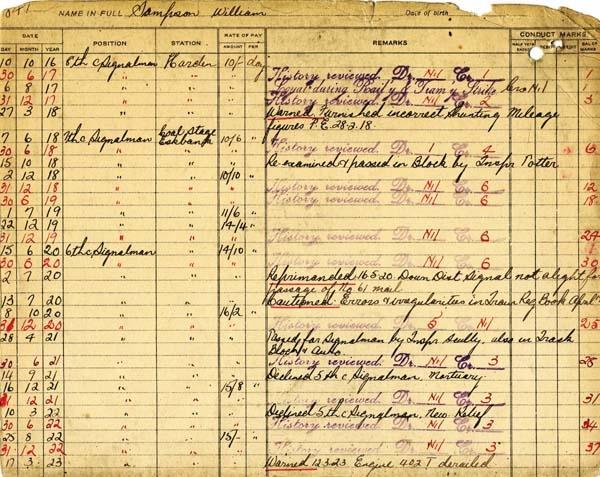 NAME IN FULL Sampson William Date of birth
DATE POSITION STATION RATE OF PAY REMARKS CONDUCT MARKS
DAY MONTH YEAR AMOUNT PER
10 10 16 8th c Signalman 10/- day
30 6 17 History reviewed. Dr. Nil Cr. 1 1
6 8 17 Loyal during Rail'y & Tram'y Strike Cr 1
31 12 17 History reviewed. Dr. Nil Cr. 2 3
27 3 18 Warned. Furnished incorrect Shunting Mileage
figures P.E. 28.2.18.
7 6 18 7th c Signalman Coal Stage Eskbank 10/6 "
30 6 18 " " History reviewed. Dr. 1 Cr. 4 6
15 10 18 " " Re-examined & passed in Block by Inspr Potter
2 12 18 " " 10/10 "
31 12 18 " " History reviewed. Dr. Nil Cr. 6 12
30 6 19 " " History reviewed. Dr. Nil Cr. 6 18
1 7 19 " " 11/6 "
22 12 19 " " 14/4 "
31 12 19 " " History reviewed. Dr. Nil Cr. 6 24
15 6 20 6th c Signalman " 14/10 "
30 6 20 " " History reviewed. Dr. Nil Cr. 6 30
2 7 20 " " Reprimanded 16.5.20. Down Dist Signal not alight for
passage of No 61 mail
13 7 20 " " Cautioned Errors & irregularities in Train Reg Book April
8 10 20 " " 16/2 "
31 12 20 " " History reviewed. Dr. 5 Cr. Nil 25
28 4 21 " " Passed for Signalman by Inspr Scully. also in Track
Block & Auto.
30 6 21 " " History reviewed. Dr. Nil Cr. 3 28
14 9 21 " " Declined 5th c Signalman, Mortuary
16 12 21 " " 15/8 "
31 12 21 " " History reviewed. Dr. Nil Cr. 3 31
10 3 22 " " Declined 5th c Signalman, New Relief
30 6 22 " " History reviewed. Dr. Nil Cr. 3 34
25 8 22 " " 15/- "
31 12 22 " " History reviewed. Dr. Nil Cr. 3 37
17 3 23 " " Warned 12.3.23 Engine 402 T derailed